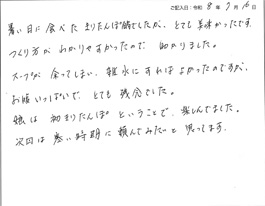 ご記入日：令和 8年 7月 16日
暑い日に食べたきりたんぽ鍋でしたが、とても美味かったです。
つくり方がわかりやすかったので助かりました。
スープが余ってしまい、雑水にすればよかったのですが、
お腹いっぱいで、とても残念でした。
娘は初きりたんぽということで、楽しんでました。
次回は寒い時期に頼んでみたいと思ってます。